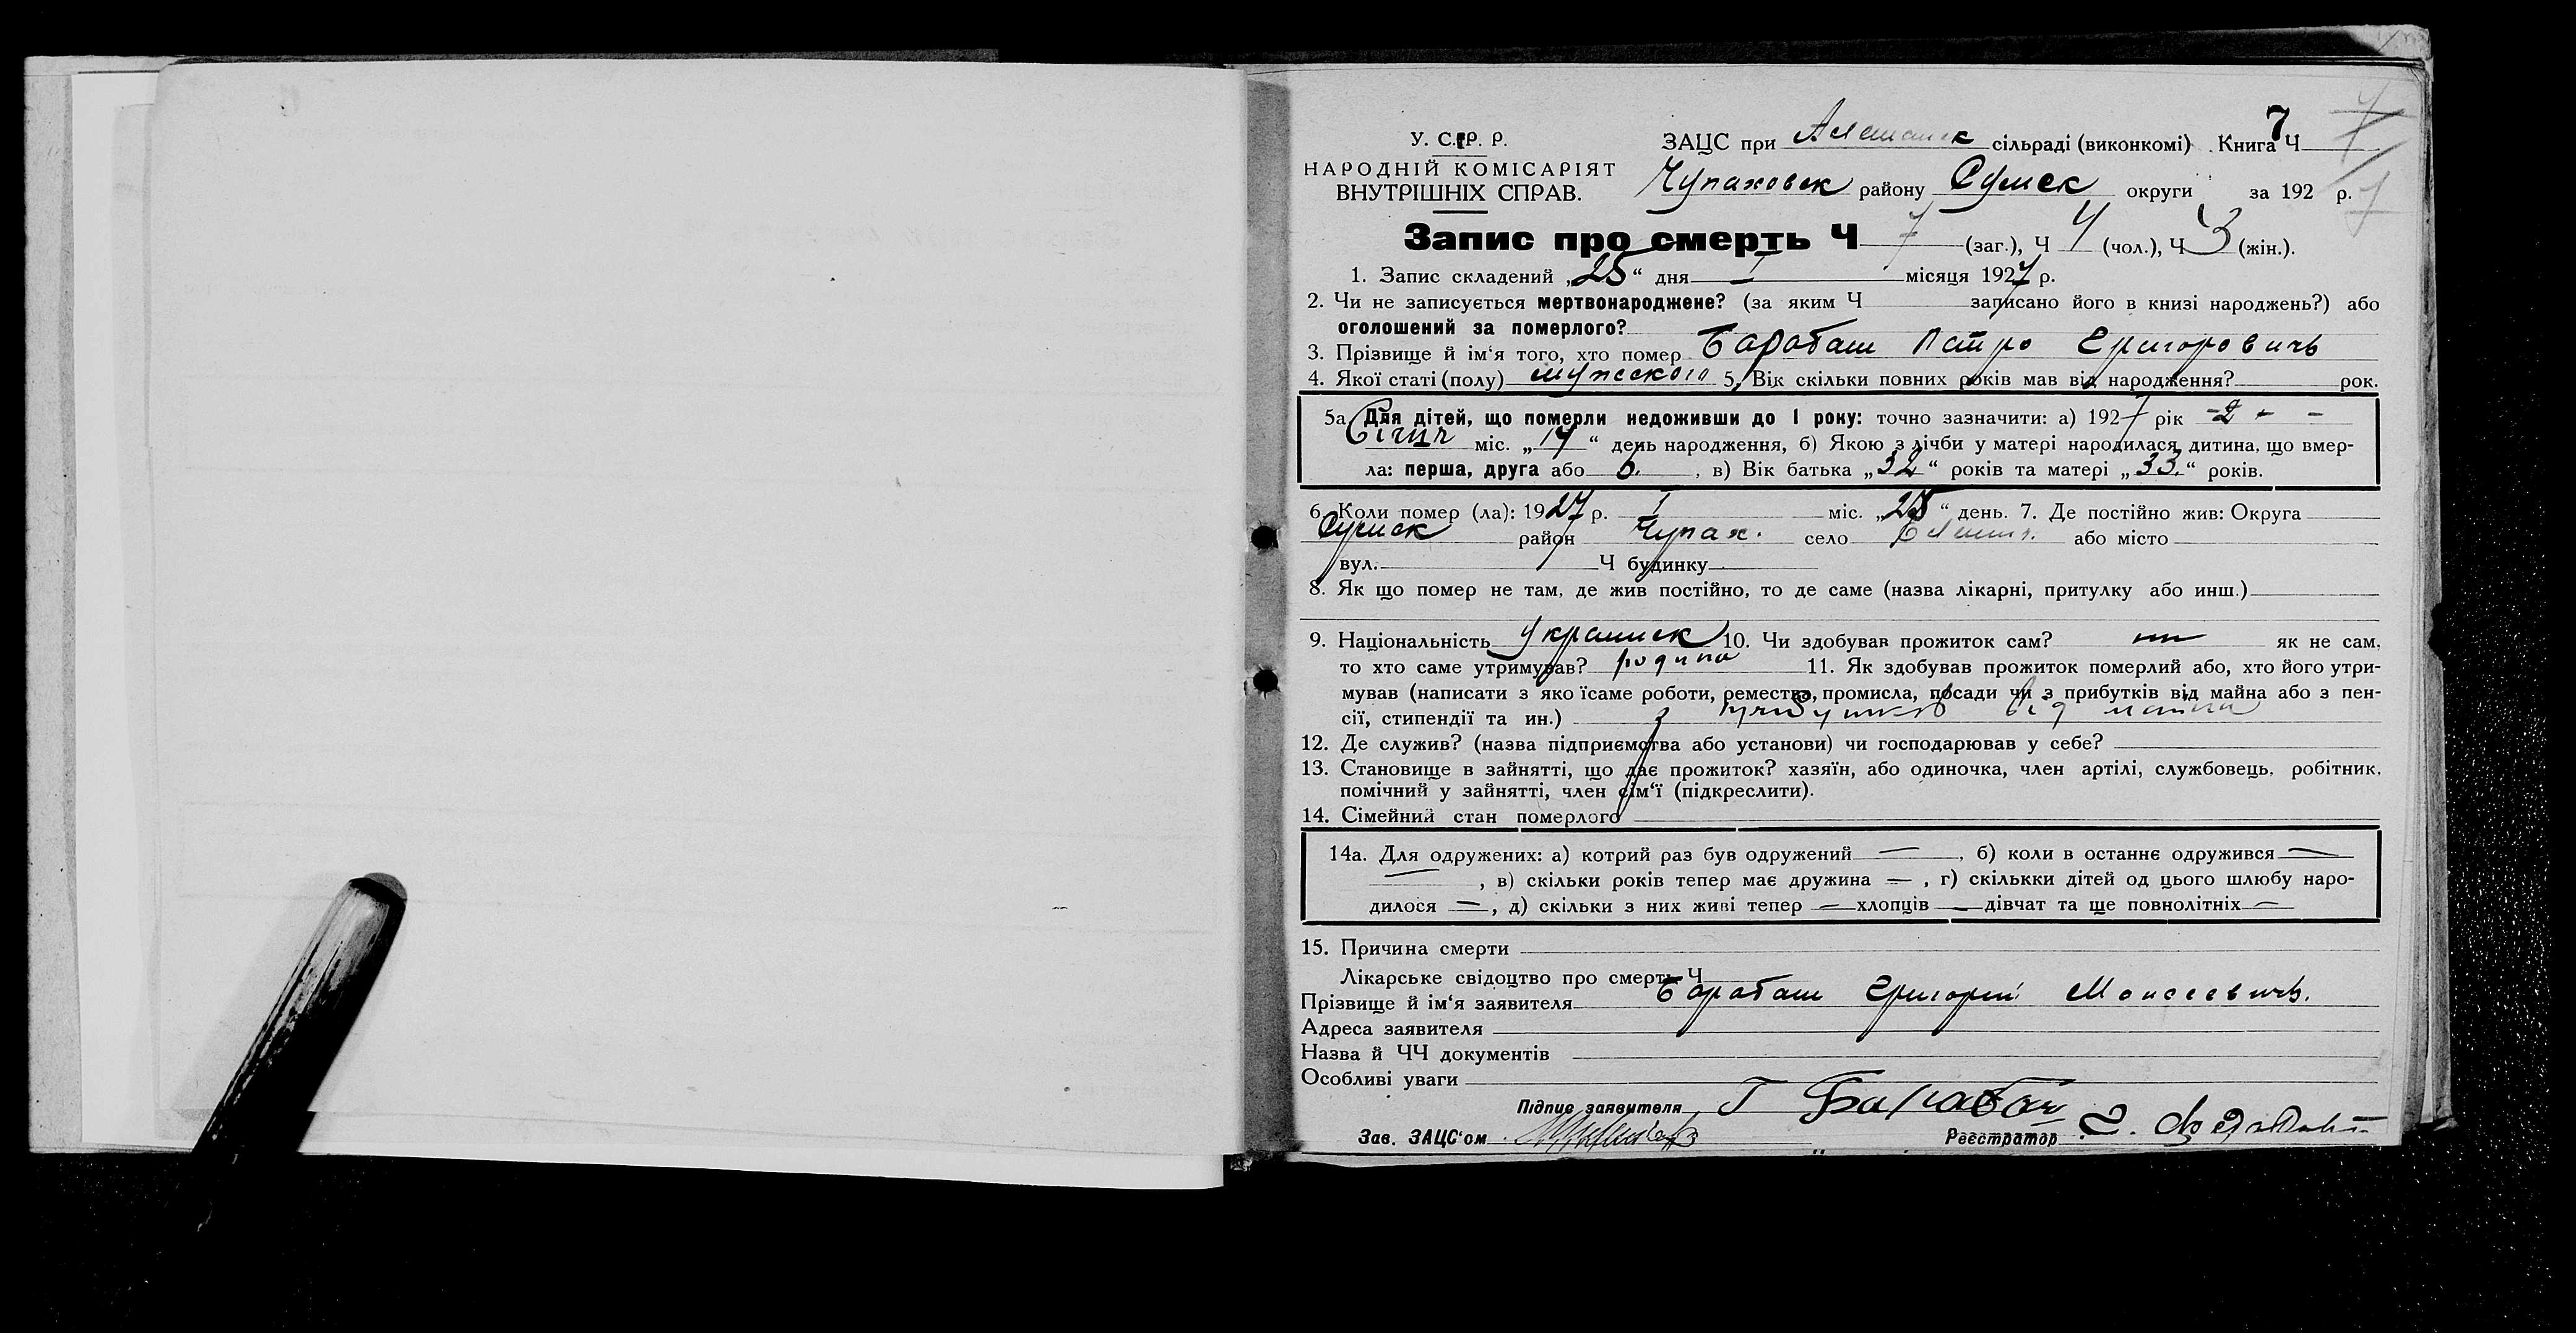 7
У. С. Р. Р. ЗАЦС при сільраді (виконкомі) Книга Ч
НАРОДНІЙ КОМІСАРІЯТ
ВНУТРІШНІХ СПРАВ. Чупаховск району Сумск округи за 192 р.
Запис про смерть Ч 7 (заг.), Ч 4 (чол.), Ч 3 (жін.).
1. Запис складений „25“ дня I місяця 1927 р.
2. Чи не записується мертвонароджене? (за яким Ч записано його в книзі народжень?) або
оголошений за померлого?
3. Прізвище й ім‘я того, хто помер Барабаш Петро Григоровичь
4. Якої статі (полу) мужеского 5. Вік скільки повних років мав від народження? рок.
5а Для дітей, що померли недоживши до 1 року: точно зазначити: а) 1927 рік - 2 - -
Січня міс. „14“ день народження, б) Якою з лічби у матері народилася дитина, що вмер-
ла: перша, друга або 6. , в) Вік батька „32“ років та матері „33.“ років.
6. Коли помер (ла): 1927 р. I міс. „25“ день. 7. Де постійно жив: Округа
Сумск район Чупах. село або місто
вул. Ч будинку
8. Як що помер не там, де жив постійно, то де саме (назва лікарні, притулку або инш.)
9. Національність Украинск 10. Чи здобував прожиток сам? ни як не сам,
то хто саме утримував? родина 11. Як здобував прожиток померлий або, хто його утри-
мував (написати з яко їсаме роботи, ремества, промисла, посади чи з прибутків від майна або з пен-
сії, стипендії та ин.) з прибутков від майна
12. Де служив? (назва підприємства або установи) чи господарював у себе?
13. Становище в зайнятті, що дає прожиток? хазяїн, або одиночка, член артілі, службовець, робітник,
помічний у зайнятті, член сім‘ї (підкреслити).
14. Сімейний стан померлого
14а. Для одружених: а) котрий раз був одружений — , б) коли в останнє одружився —
— , в) скільки років тепер має дружина — , г) скількки дітей од цього шлюбу наро-
дилося — , д) скільки з них живі тепер — хлопців — дівчат та ще повнолітніх —
15. Причина смерти
Лікарське свідоцтво про смерть Ч
Прізвище й ім‘я заявителя Барабаш Григорий Моисеевичь.
Адреса заявителя
Назва й ЧЧ документів
Особливі уваги
Підпис заявителя Г Барабаш
Зав. ЗАЦС‘ом Реєстратор